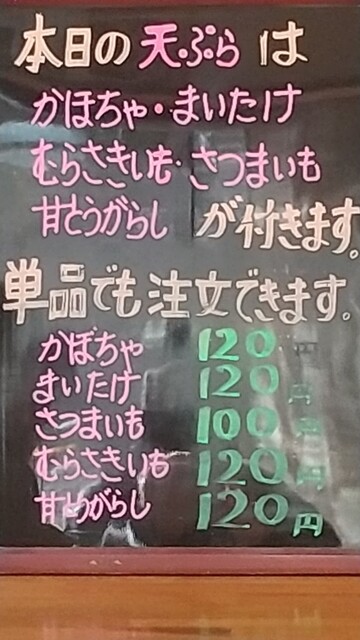 本日の天ぷらは
かぼちゃ・まいたけ
むらさきいも・さつまいも
甘とうがらし が付きます。
単品でも注文できます。
かぼちゃ 120円
まいたけ 120円
さつまいも 100円
むらさきいも 120円
甘とうがらし 120円